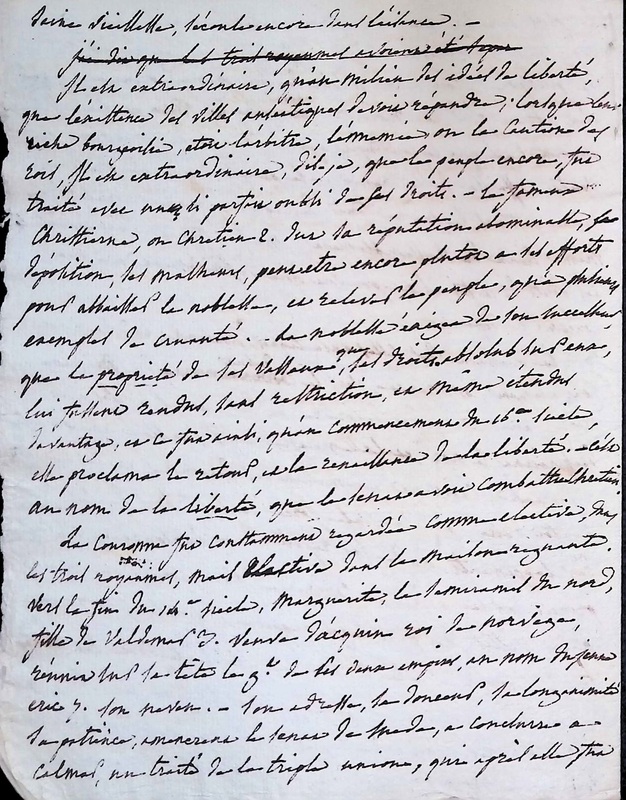 saine vieillesse, féconde encore dans le silence. —
j'ai dis que les trois royaumes avoient été
Il est extraordinaire, qu'au milieu des idées de liberté,
que l'existence des villes anséatiques devoit répandre, lorsque leur
riche bourgeoisie, étoit l'arbitre, l'ennemie, ou la caution des
rois, Il est extraordinaire, dis-je, que le peuple encore, fut
traité avec un si parfait oubli de ses droits. — le fameux
Christierne, ou Chretien 2. dut sa réputation abominable, sa
déposition, ses malheurs, peut etre encore plutot a ses efforts
pour abbaisser la noblesse, et relever le peuple, qu'a plusieurs
exemples de cruauté. — La noblesse éxigea de son successeur,
que la propriété de ses vassaux, que ses droits absolus sur eux,
lui fussent rendus, sans restriction, et même étendus
davantage, et ce fut ainsi, qu'au commencement du 16.e siècle,
elle proclama le retour, et la renaissance de la liberté. — C'est
au nom de la liberté, que le senat avoit combattu chretien.
La Couronne fut constamment regardée comme elective, dans
les trois royaumes, mais elective dans la maison regnante.
vers la fin du 14.e siècle, Marguerite, la semiramis du nord,
fille de Valdemar 3. veuve d'acquin roi de norvège,
réunit sur sa tete le g.t de ses deux empires, au nom du jeune
eric 7. son neveu. — son adresse, sa douceur, sa longanimité
sa patience, amenerent le senat de suede, a conclure a
calmar, un traité de la triple union, qui après elle fut